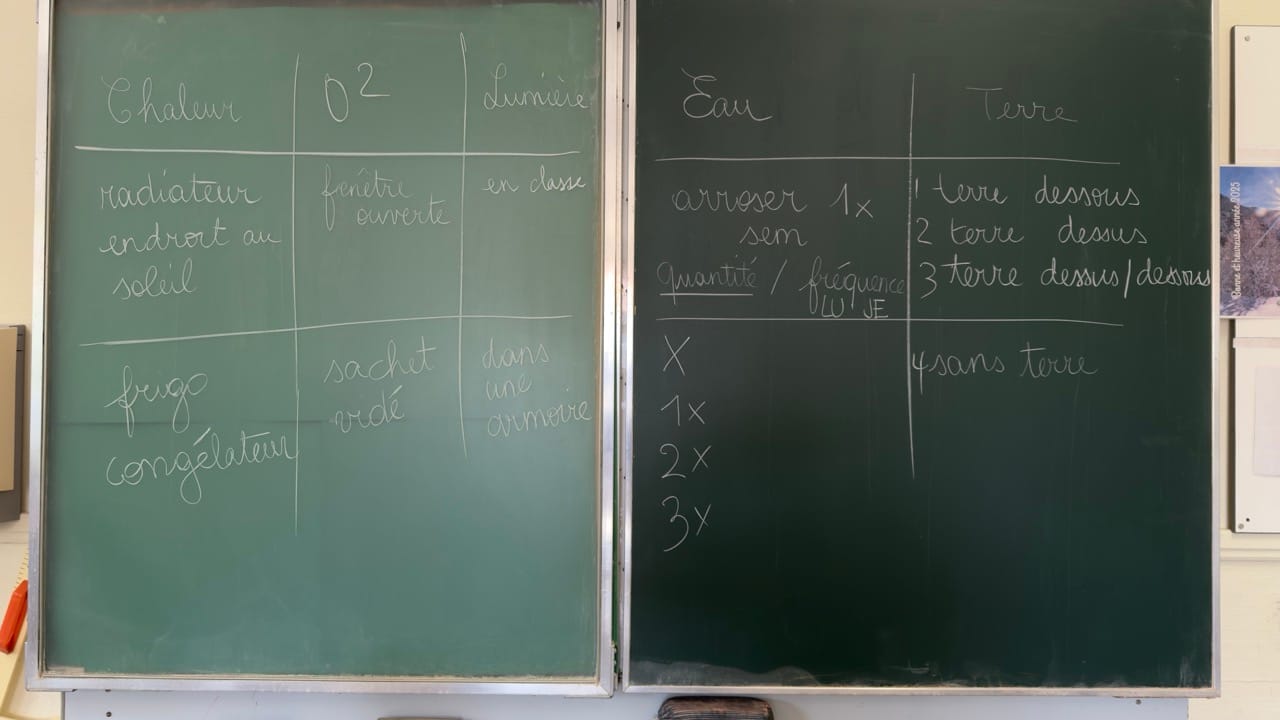 Chaleur
O²
Lumière
radiateur
endroit au
soleil
fenêtre
ouverte
en classe
frigo
congélateur
sachet
vidé
dans
une
armoire
Eau
Terre
arroser 1x
sem
quantité / fréquence
LU JE
1 terre dessous
2 terre dessus
3 terre dessus/dessous
X
1x
2x
3x
4 sans terre
Bonne et heureuse année 2025